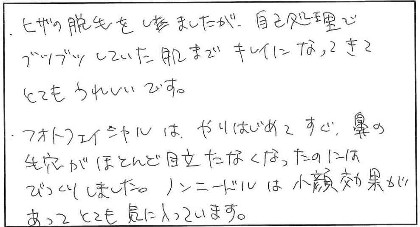 ・ヒザの脱毛をしましたが、自己処理で
ブツブツしていた肌までキレイになってきて
とてもうれしいです。
・フォトフェイシャルは、やりはじめてすぐ、鼻の
毛穴がほとんど目立たなくなったのには
びっくりしました。ノンニードルは小顔効果が
あってとても気に入っています。